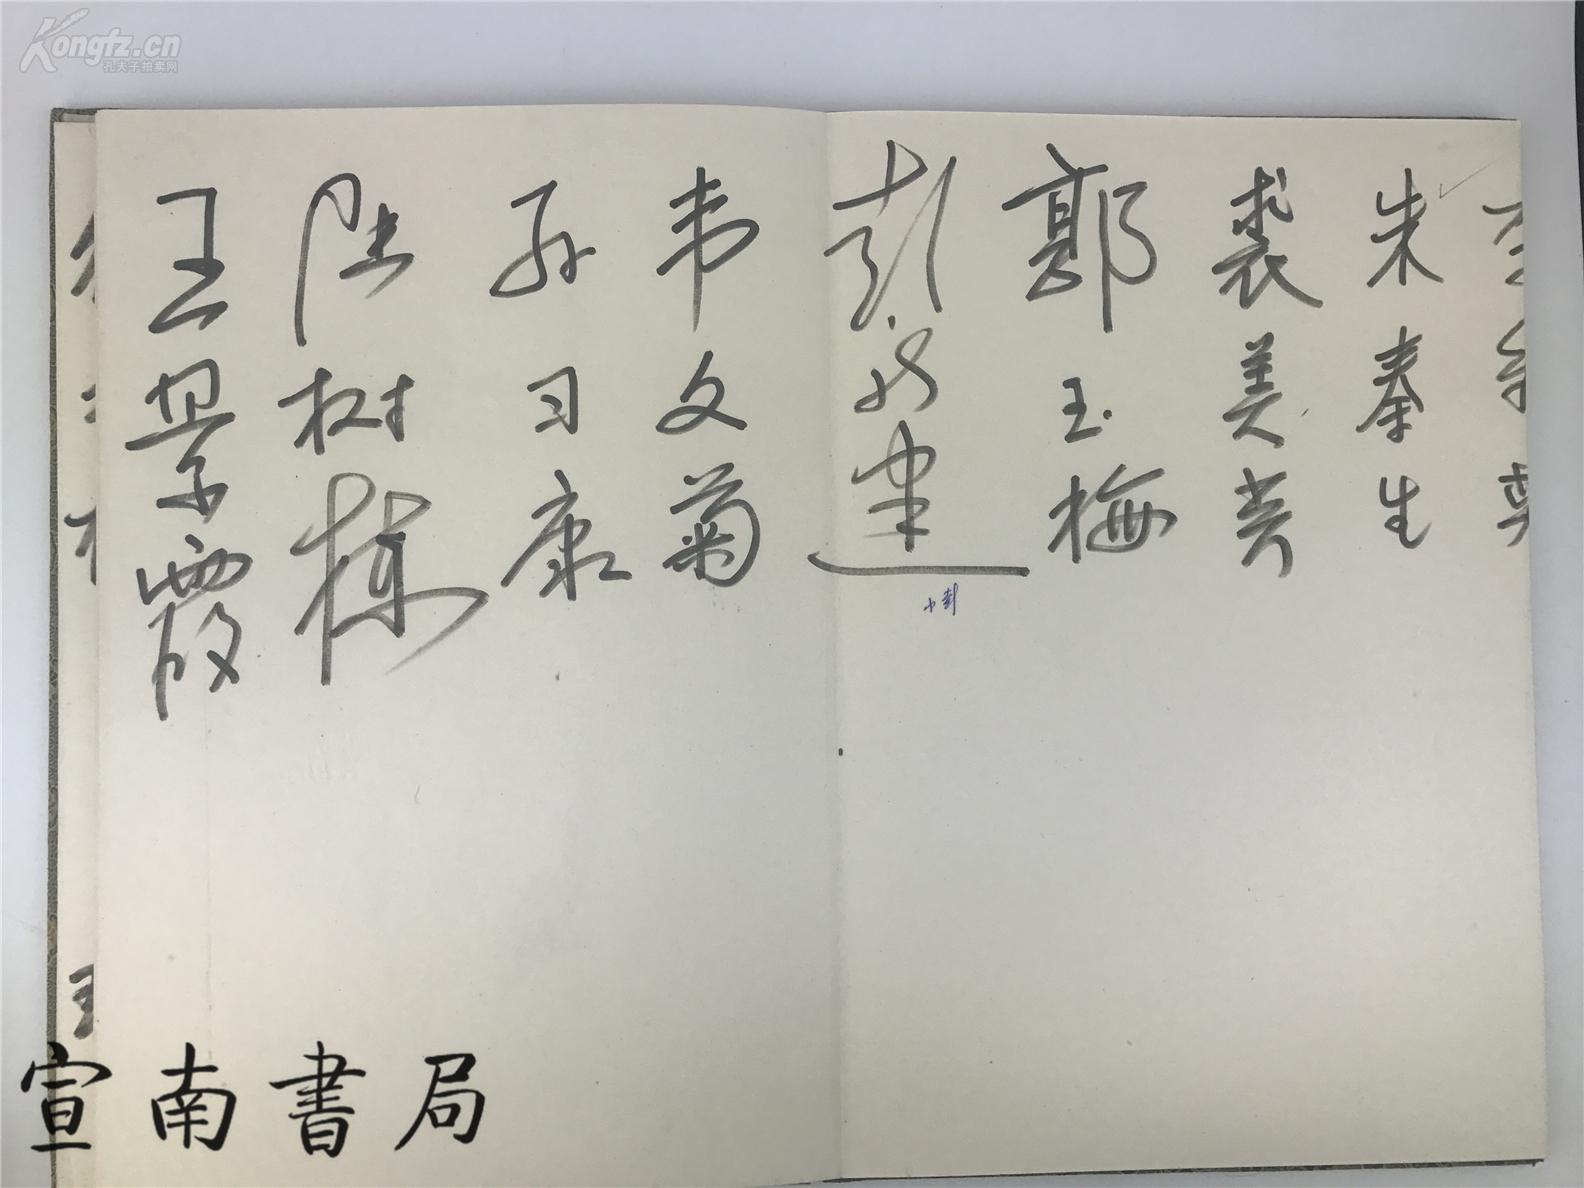 Kongfz.cn
孔夫子拍卖网
朱秦生
裘美
郭玉梅
彭建
小彭
韦文菊
孙习康
陆树栋
王景霞
宣南書局